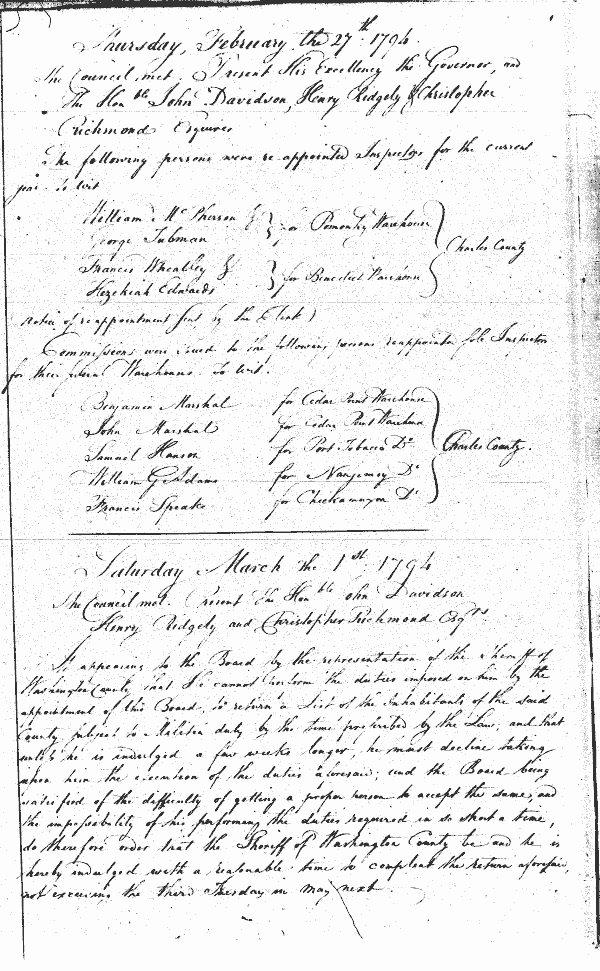 Thursday, February the 27th 1794.
The Council met. Present His Excellency the Governor, and
The Honble John Davidson, Henry Ridgely & Christopher
Richmond Esquires
The following persons were re-appointed Inspectors for the current
year. To wit
William McPherson & } for Pomonky Warehouse
George Tubman
Charles County
Francis Wheatley & } for Benedict Warehouse
Hezekiah Edwards
notice of reappointment sent by the Clerk)
Commissions were issued to the following persons reappointed sole Inspectors
for their several Warehouses. To wit.
Benjamin Marshal for Cedar Point Warehouse
John Marshal for Cedar Point Warehouse
Samuel Hanson for Port Tobacco Do
Charles County.
William G. Adams for Nanjemoy Do
Francis Speake for Chickamuxon Do
Saturday March the 1st 1794
The Council met. Present The Honble John Davidson
Henry Ridgely and Christopher Richmond Esqrs
It appearing to the Board by the representation of the Sheriff of
Washington County that he cannot perform the duties imposed on him by the
appointment of this Board, to return a List of the Inhabitants of the said
County subject to Militia duty by the time prescribed by the Law, and that
unless he is indulged a few weeks longer, he must decline taking
upon him the execution of the duties aforesaid; and the Board being
satisfied of the difficulty of getting a proper person to accept the same, and
the impossibility of his performing the duties required in so short a time,
do therefore order that the Sheriff of Washington County be and he is
hereby indulged with a reasonable time to compleat the return aforesaid,
not exceeding the third Tuesday in May next.